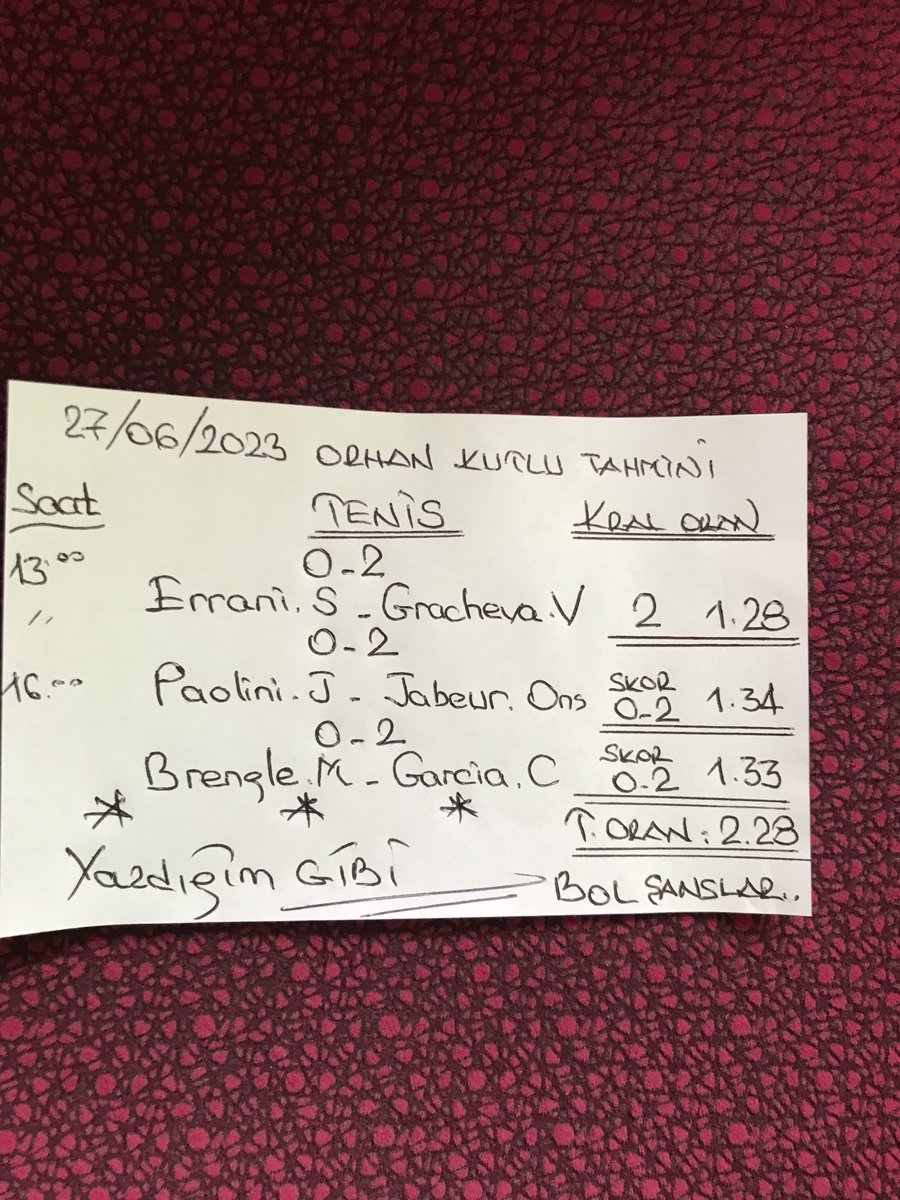 27/06/2023 ORHAN KUTLU TAHMİNİ
Saat TENİS KRAL ORAN
13.00 0-2
" Errani.S - Gracheva.V 2 1.28
0-2
16.00 Paolini.J - Jabeur.Ons SKOR 0-2 1.34
0-2
Brengle.M - Garcia.C SKOR 0-2 1.33
T.ORAN: 2.28
Yazdığım GİBİ BOL ŞANSLAR..